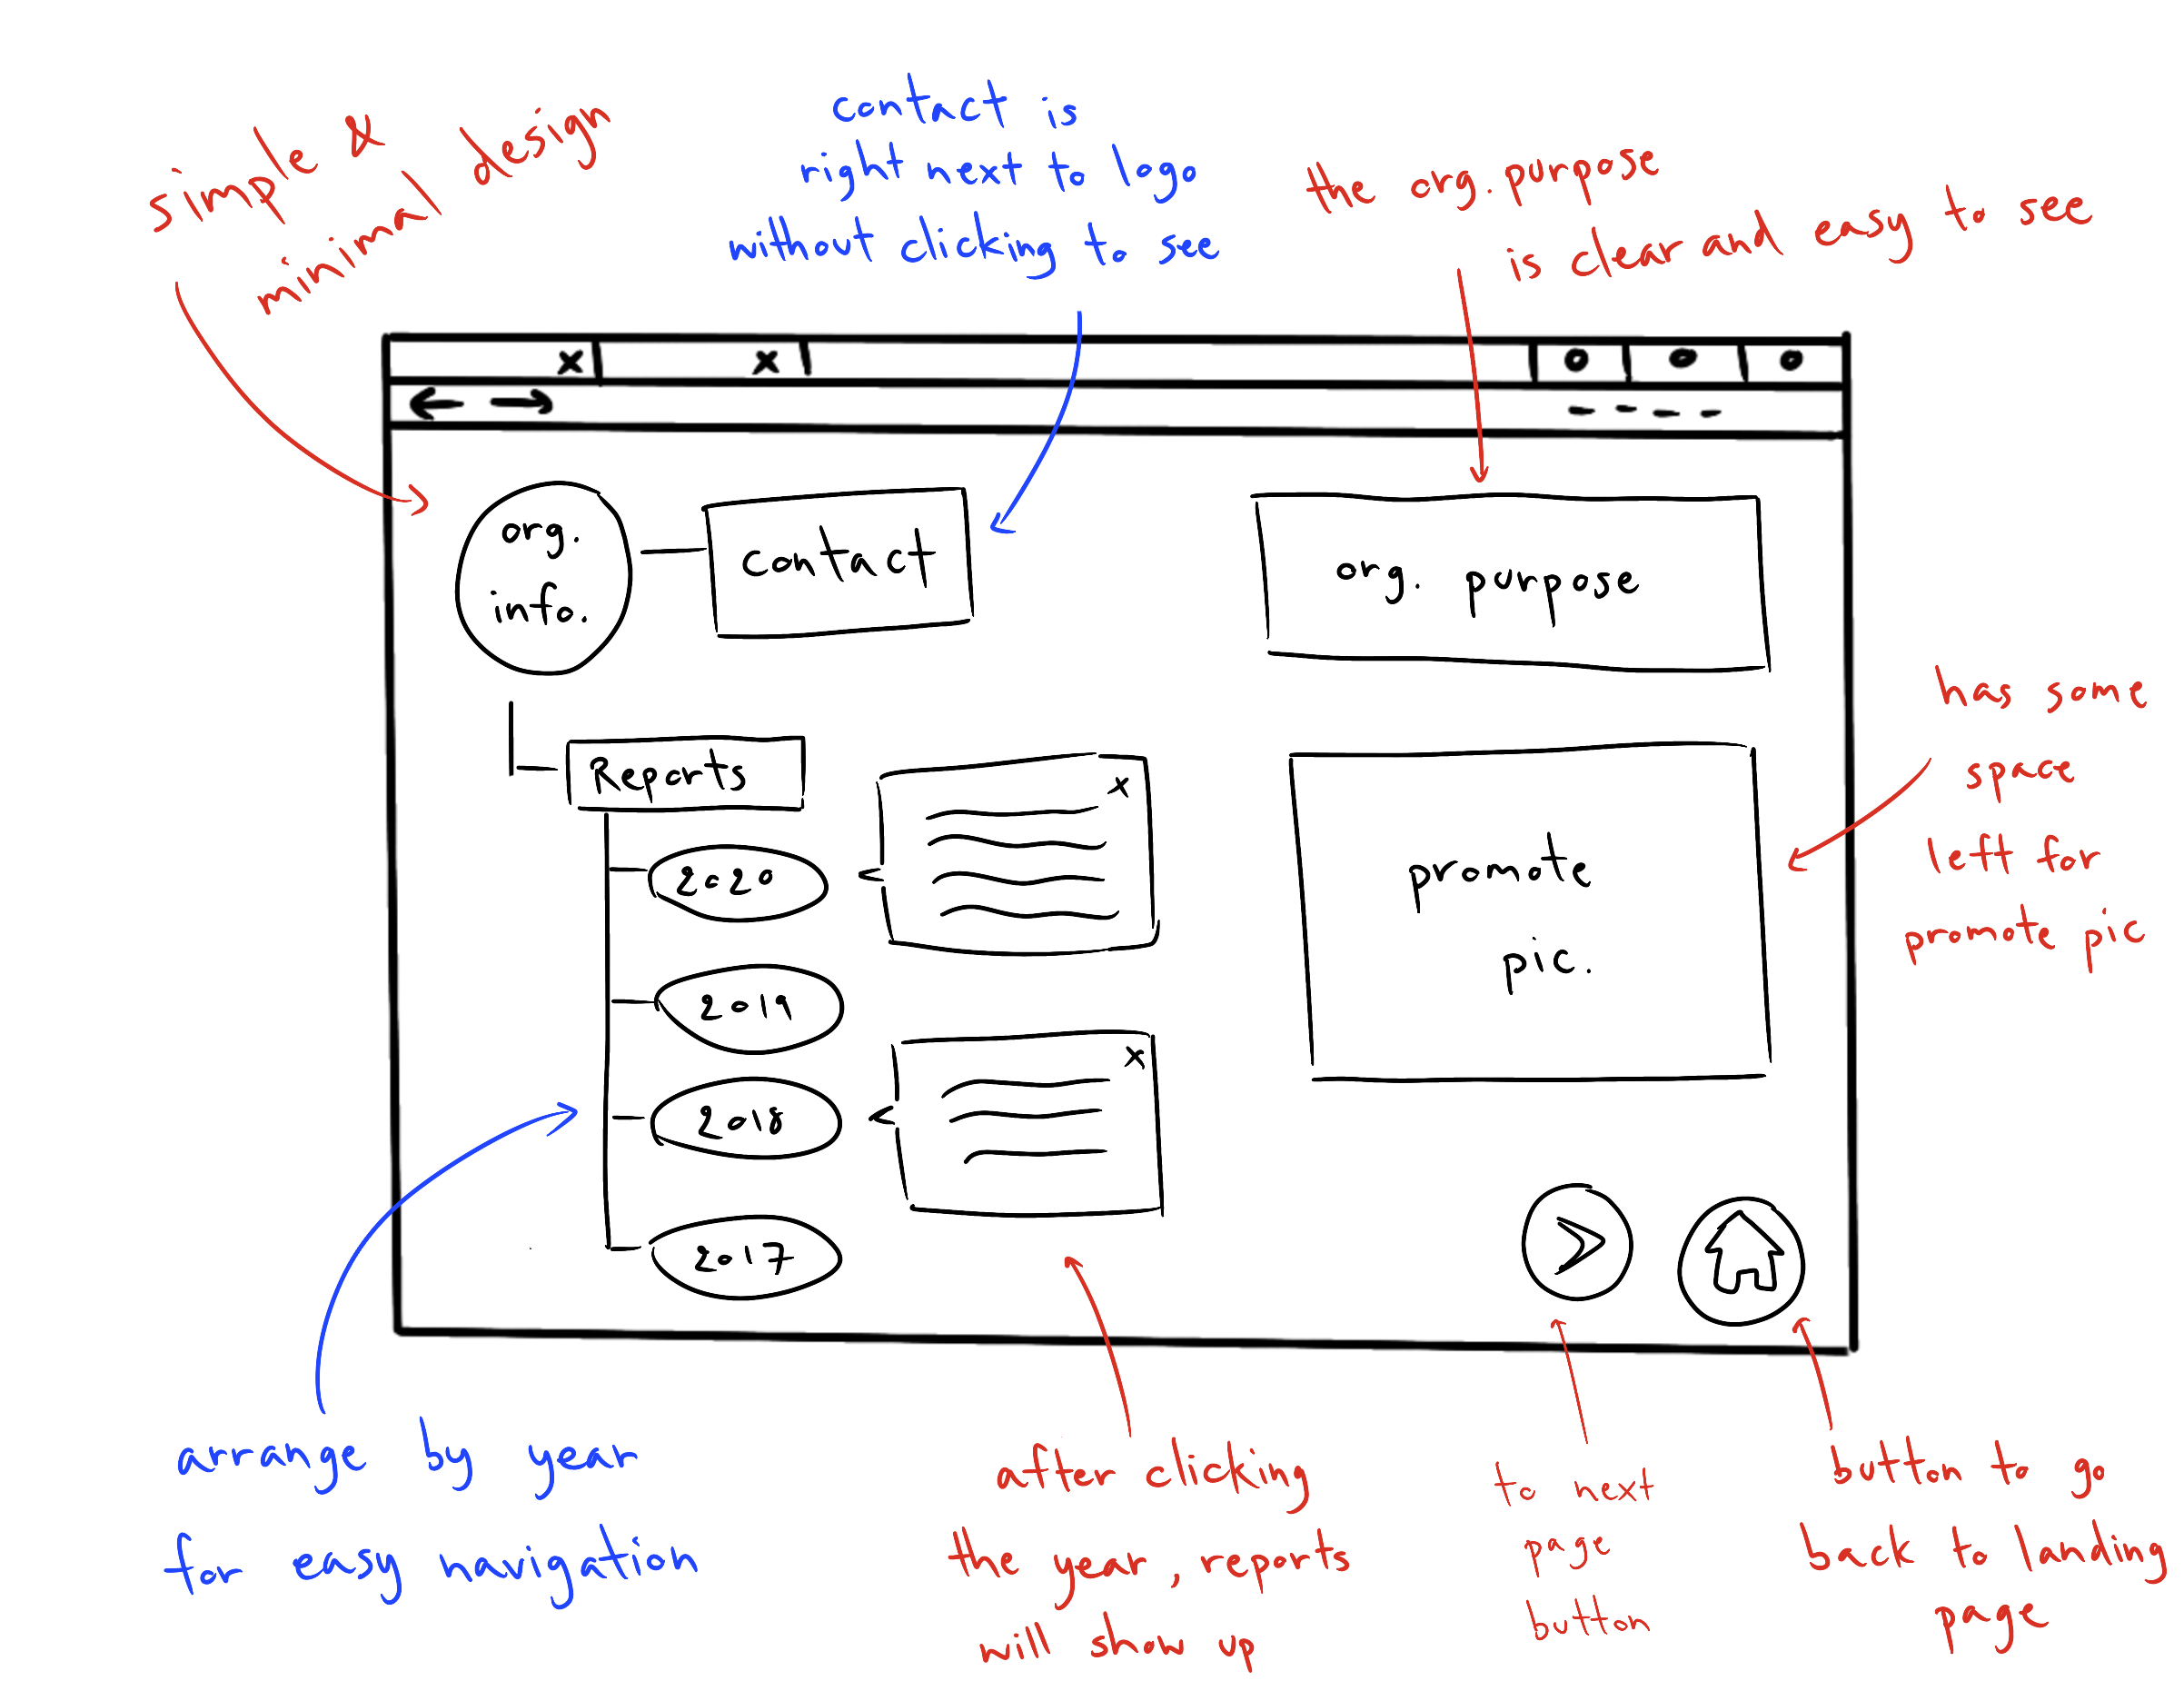 simple &
minimal design
contact is
right next to logo
without clicking to see
the org. purpose
is clear and easy to see
x
x
org.
info.
contact
org. purpose
Reports
x
2020
2019
x
2018
2017
promote
pic.
has some
space
left for
promote pic
arrange by year
for easy navigation
after clicking
the year, reports
will show up
to next
page
button
button to go
back to landing
page